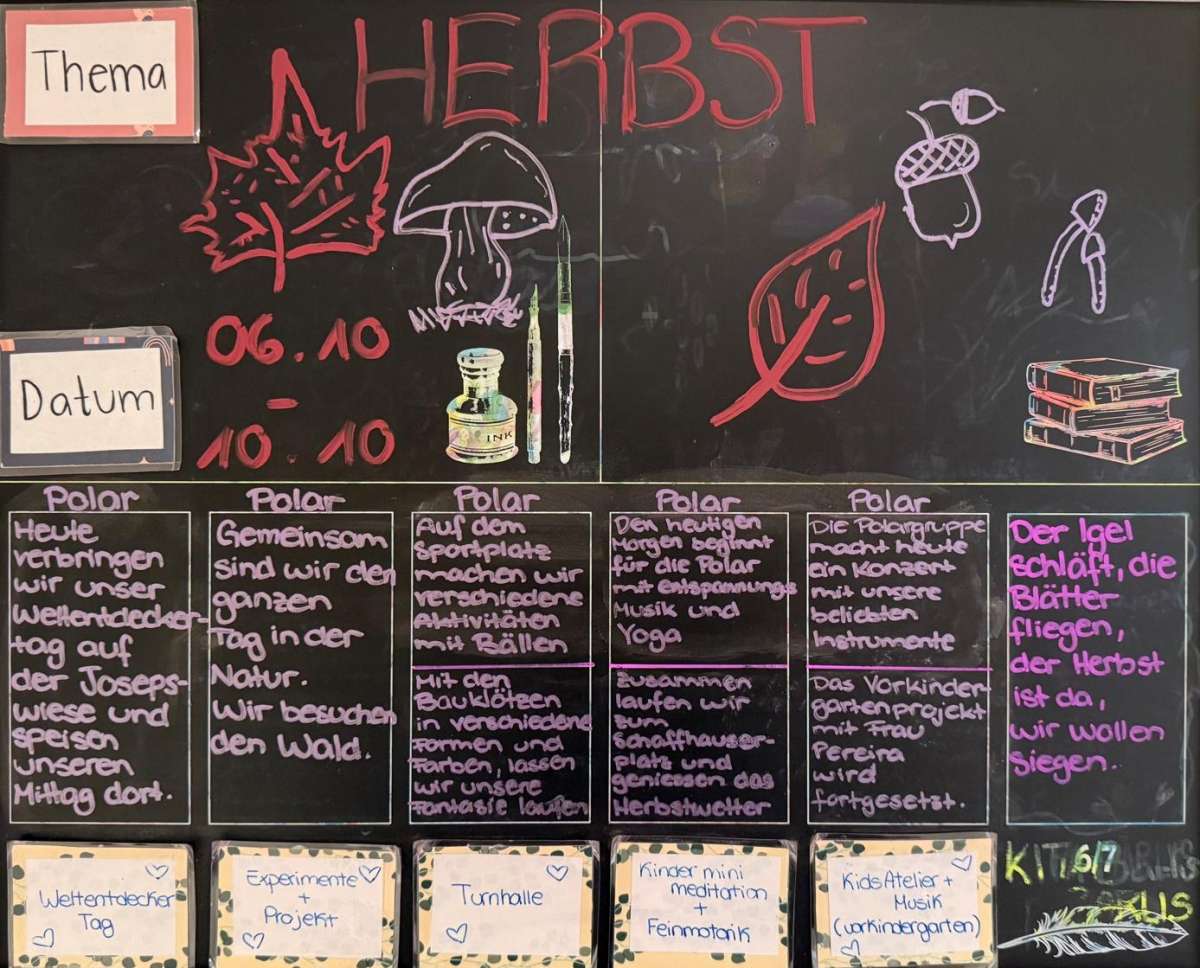 Thema
HERBST
Datum
06.10
-
10.10
INK
Polar
Heute
verbringen
wir unser
Weltentdecker-
tag auf
der Joseps-
wiese und
speisen
unseren
Mittag dort.
Polar
Gemeinsam
sind wir den
ganzen
Tag in der
Natur.
Wir besuchen
den Wald.
Polar
Auf dem
Sportplatz
machen wir
verschiedene
Aktivitäten
mit Bällen
Mit den
Bauklötzen
in verschiedene
Formen und
Farben, lassen
wir unsere
Fantasie laufen
Polar
Den heutigen
Morgen beginnt
für die Polar
mit entspannungs
Musik und
Yoga
Zusammen
laufen wir
zum
Schaffhauser-
platz und
geniessen das
Herbstwetter
Polar
Die Polargruppe
macht heute
ein Konzert
mit unsere
beliebten
Instrumente
Das Vorkinder-
gartenprojekt
mit Frau
Pereira
wird
fortgesetzt.
Der Igel
schläft, die
Blätter
fliegen,
der Herbst
ist da,
wir wollen
siegen.
Weltentdecker
Tag
Experimente
+
Projekt
Turnhalle
Kinder mini
meditation
+
Feinmotorik
Kids Atelier +
Musik
(vorkindergarten)
KIT 6/7